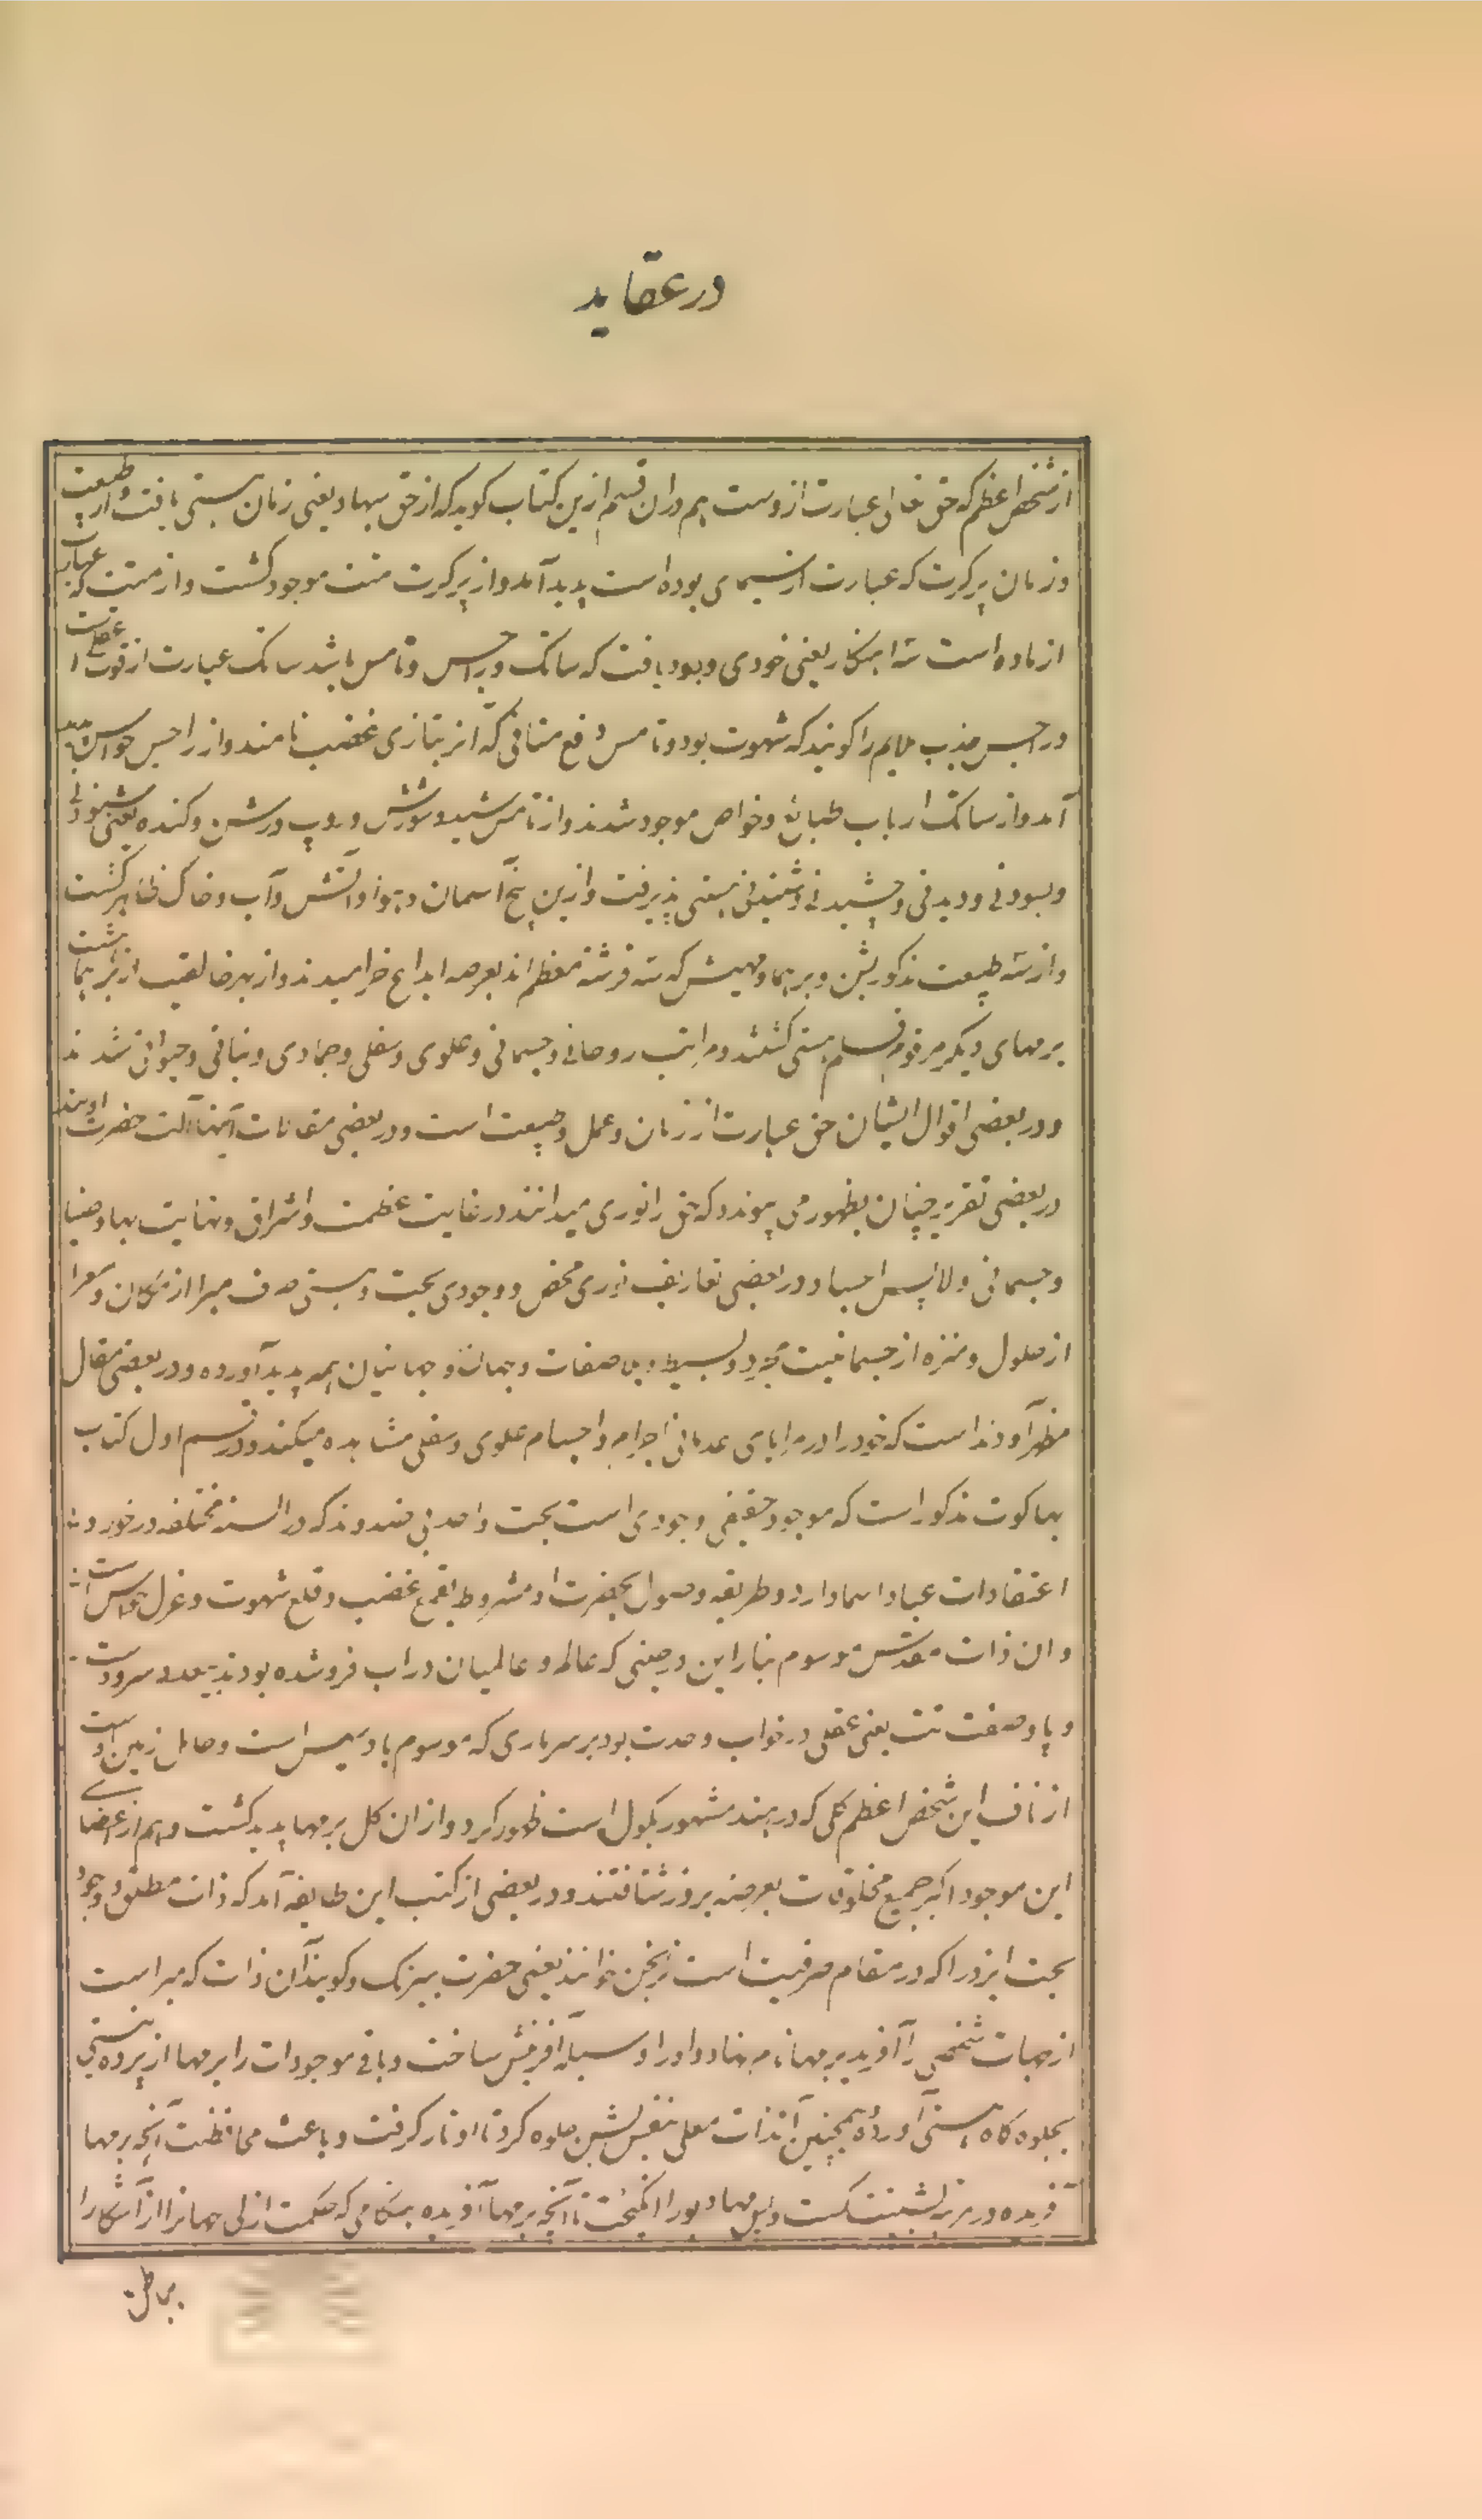 در عقاید
از شخص اعظم که حق تعالی عبارت ازوست هم دران قسم ازین کتاب گوید که از حق بها و یعنی زمان هستی یافت و از طبیعت
و زمان پرکرت که عبارت از سیمای بوده است پدید آمد و از پرکرت مهت موجود گشت و از مهت که عبارت
از ماده است سه اهنکار یعنی خودی وجود یافت که ساتک و راجس و تامس باشد ساتک عبارت از قوت عقلی است
و راجس جذب ملایم را گویند که شهوت بود و تامس دفع منافی که انرا بتازی غضب نامند و از راجس حواس پدید
آمد و از ساتک ارباب طبایع و خواص موجود شدند و از تامس شبد و سپرش و روپ و رس و کنده یعنی شنودنی
و بسودنی و دیدنی و چشیدنی و شنیدنی هستی پذیرفت و ازین پنج آسمان و هوا و آتش و آب و خاک ظاهر گشت
و از سه طبیعت مذکور بشن و برهما و مهیش که سه فرشته معظم اند بعرصه ابداع خرامیدند و از بهر خالقیت از برهما هشت
برمهای دیگر مرقوم قسام هستی گشتند و مراتب روحانی و جسمانی و علوی و سفلی و جمادی و نباتی و حیوانی شدند
و در بعضی اقوال ایشان حق عبارت از زمان و عمل و طبیعت است و در بعضی مقامات اینها آلت حضرت اویند
در بعضی تقریر چنان بظهور می پیوندد که حق را نوری میدانند در غایت عظمت و اشراق و نهایت بها و ضیا
و جسمانی و لابس اجساد و در بعضی تعاریف نوری محض و وجودی بحت و هستی صرف مبرا از مکان و معرا
از حلول و منزه از جسمانیت مجرد و بسیط و بی صفات و جهان و جهانیان همه پدید آورده و در بعضی مقال
مظهر آورده است که خود را در مرایای عدمانی اجرام و اجسام علوی و سفلی مشاهده میکند و در قسم اول کتاب
بهاکوت مذکور است که موجود حقیقی وجودی است بحت و احد بی ضد و ند که در السنه مختلفه در خور
اعتقادات عباد اسما دارد و طریقه وصول بحضرت او مشروط بقمع غضب و قلع شهوت و عزل حواس است
و ان ذات مقدس موسوم بناراین و چینی که عالم و عالمیان در اب فرو شده بودند سرو دست
و پا و صفت ست یعنی عقلی در خواب وحدت بود بر سر ماری که موسوم بادسیس است و حامل زمین اوست
از ناف این شخص اعظم گلی که در هند مشهور بکول است ظهور کرد و از ان گل برمها پدید گشت و هم از اعضای
این موجود اکبر جمیع مخلوقات بعرصه بروز شتافتند و در بعضی از کتب این طایفه آمد که ذات مطلق و وجود
بحت ایزد را که در مقام صرفیت است نرنجن خوانند یعنی حضرت بیرنگ و گویند آن ذات که مبراست
از جهات شخصی را آفرید برمها نام نهاد و او را وسیله آفرینش ساخت و باقی موجودات را برمها از پرده نیستی
بجلوه گاه هستی آورد و همچنین آن ذات معلی بنفس بشن جلوه کرد تا اوتار گرفت و باعث محافظت آنچه برمها
آفریده در مرتبه بشنیت گشت و پس مهادیو را انگیخت تا آنچه برمها آفریده بهنگامی که حکمت ازلی جهانرا از آشکارا
بباطن